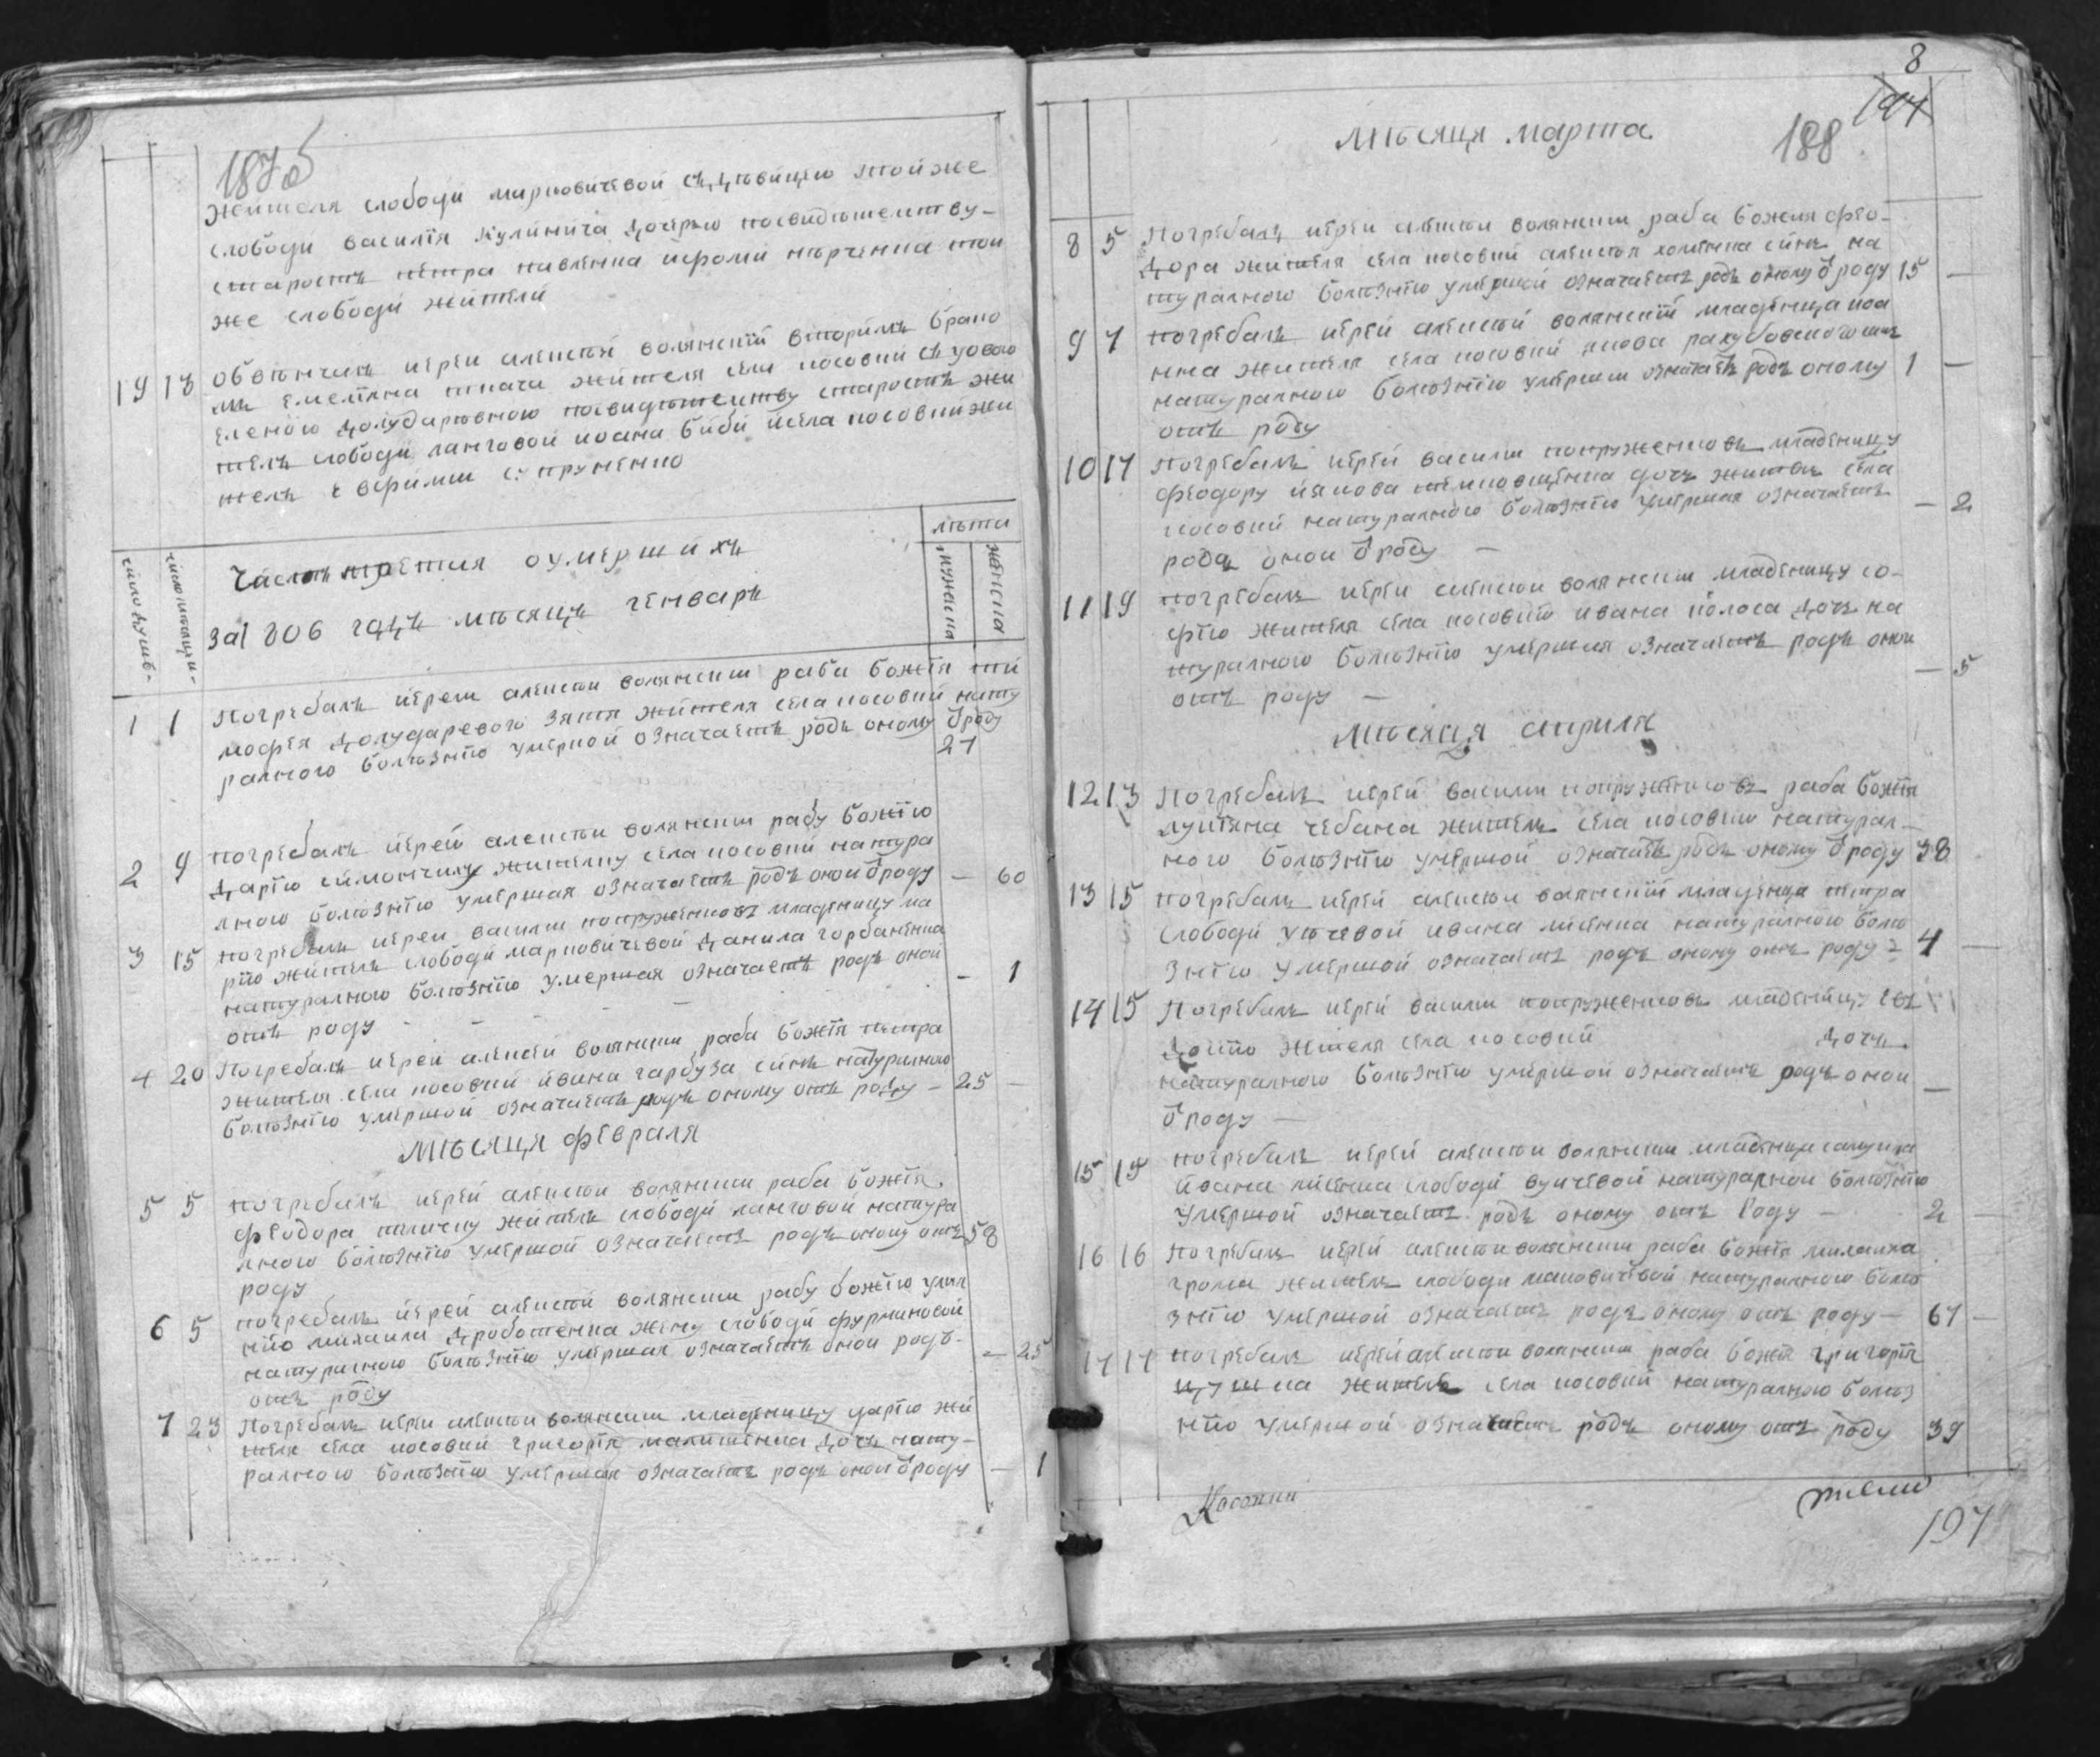 187об
жителя слободи марковичевой съ дѣвицею тойже
слободи василія кулинича дочерью посвидѣтелству-
старостъ петра павленка
же слободи жители
19 13 обвѣнчилъ иерей алексѣй волянский вторимъ брако
мъ емелияна ткача жителя села посовки съ удовою
еленою долударивною посвидѣтелству старостъ жи
телъ слободи ланговой иоана биби исела посовки жи
телъ
лѣта
число душъ-
число мѣсяци-
мужеска
женска
Часть третия оумершихъ
за1806 годъ мѣсяцъ генваръ
1 1 погребалъ иереи алексѣи волянскии раба божія ти
мофея долударевого зятя жителя села посовки нату
ралною болѣзнію умершой означаетъ родъ оному ѿроду 27
2 9 погребалъ иерей алексѣи волянскии рабу божію
дарию симончиху жителку села посовки натура
лною болѣзнію умершая означаетъ родъ оной ѿроду — 60
3 15 погребалъ иереи василии покруженковъ младеницу ма
рию жителъ слободи марковичевой данила горбаненка
натуралною болѣзнію умершая означаетъ родъ оной — 1
отъ роду
4 20 Погребалъ иерей алексѣй волянскии раба божія петра
жителя села посовки ивана гарбуза синъ натуралною
болѣзнію умершой означаетъ родъ оному отъ роду — 25 —
Мѣсяця февраля
5 5 погребалъ иерей алексѣи волянскии раба божія
феодора жителъ слободи ланговой натура
лною болѣзнію умершой означаетъ родъ оному отъ 58
роду
6 5 погребалъ иерей алексѣй волянскии рабу божію улия
нию михаила дроботенка жену слободи фурмановой
натуралною болѣзнію умершая означаетъ оной родъ- — 25
отъ роду
7 23 Погребалъ иереи алексѣи волянскии младеницу дарию жи
теля села посовки григорія дочь нату-
ралною болѣзнію умершая означаетъ родъ оной ѿроду — 1
8
194
188
Мѣсяця марта
8 5 Погребалъ иереи алексѣи волянскии раба божия фео-
дора жителя села посовки алексѣя хоменка синъ на
туралною болѣзнію умершой означаетъ родъ оному ѿроду 15 —
9 7 погребалъ иерей алексѣй волянский младенца иоа
нна жителя села посовки якова
натуралною болѣзнію умерши означаетъ родъ оному 1 —
отъ роду
10 17 Погребалъ иерей василии покруженковъ младеницу
феодору якова дочь жителъ села
посовки натуралною болѣзнію умершая означаетъ — 2
родъ оной ѿроду —
11 19 погребалъ иереи алексѣи волянскии младеницу со-
фию жителя села посовки ивана дочь на
туралною болѣзнію умершая означаетъ родъ оной — 5
отъ роду —
Мѣсяця априля
12 13 Погребалъ иерей василии покруженковъ раба божія
лукіяна чебана жителъ села посовки натурал-
ною болѣзнію умершой означаетъ родъ оному ѿроду 38
13 15 погребалъ иерей алексѣи волянский младенца петра
слободи ивана лисенка натуралною болѣ
знію умершой означаетъ родъ оному отъ роду — 4 —
14 15 Погребалъ иерей василии покруженковъ младеницу
докію жителя села посовки дочь
натуралною болѣзнію умершои означаетъ родъ оной —
ѿроду —
15 15 погребалъ иерей алексѣи волянскии младенца самуила
ивана лисенка слободи натуралной болѣзнію
умершой означаетъ родъ оному отъ роду — 2 —
16 16 Погребалъ иерей алексѣи волянскии раба божія
грома жителъ слободи натуралною болѣ
знію умершой означаетъ родъ оному отъ роду — 67 —
17 17 погребалъ иерей алексѣи волянскии раба божія григорія
жителъ села посовки натуралною болѣз
нію умершой означаетъ родъ оному отъ роду 39
197